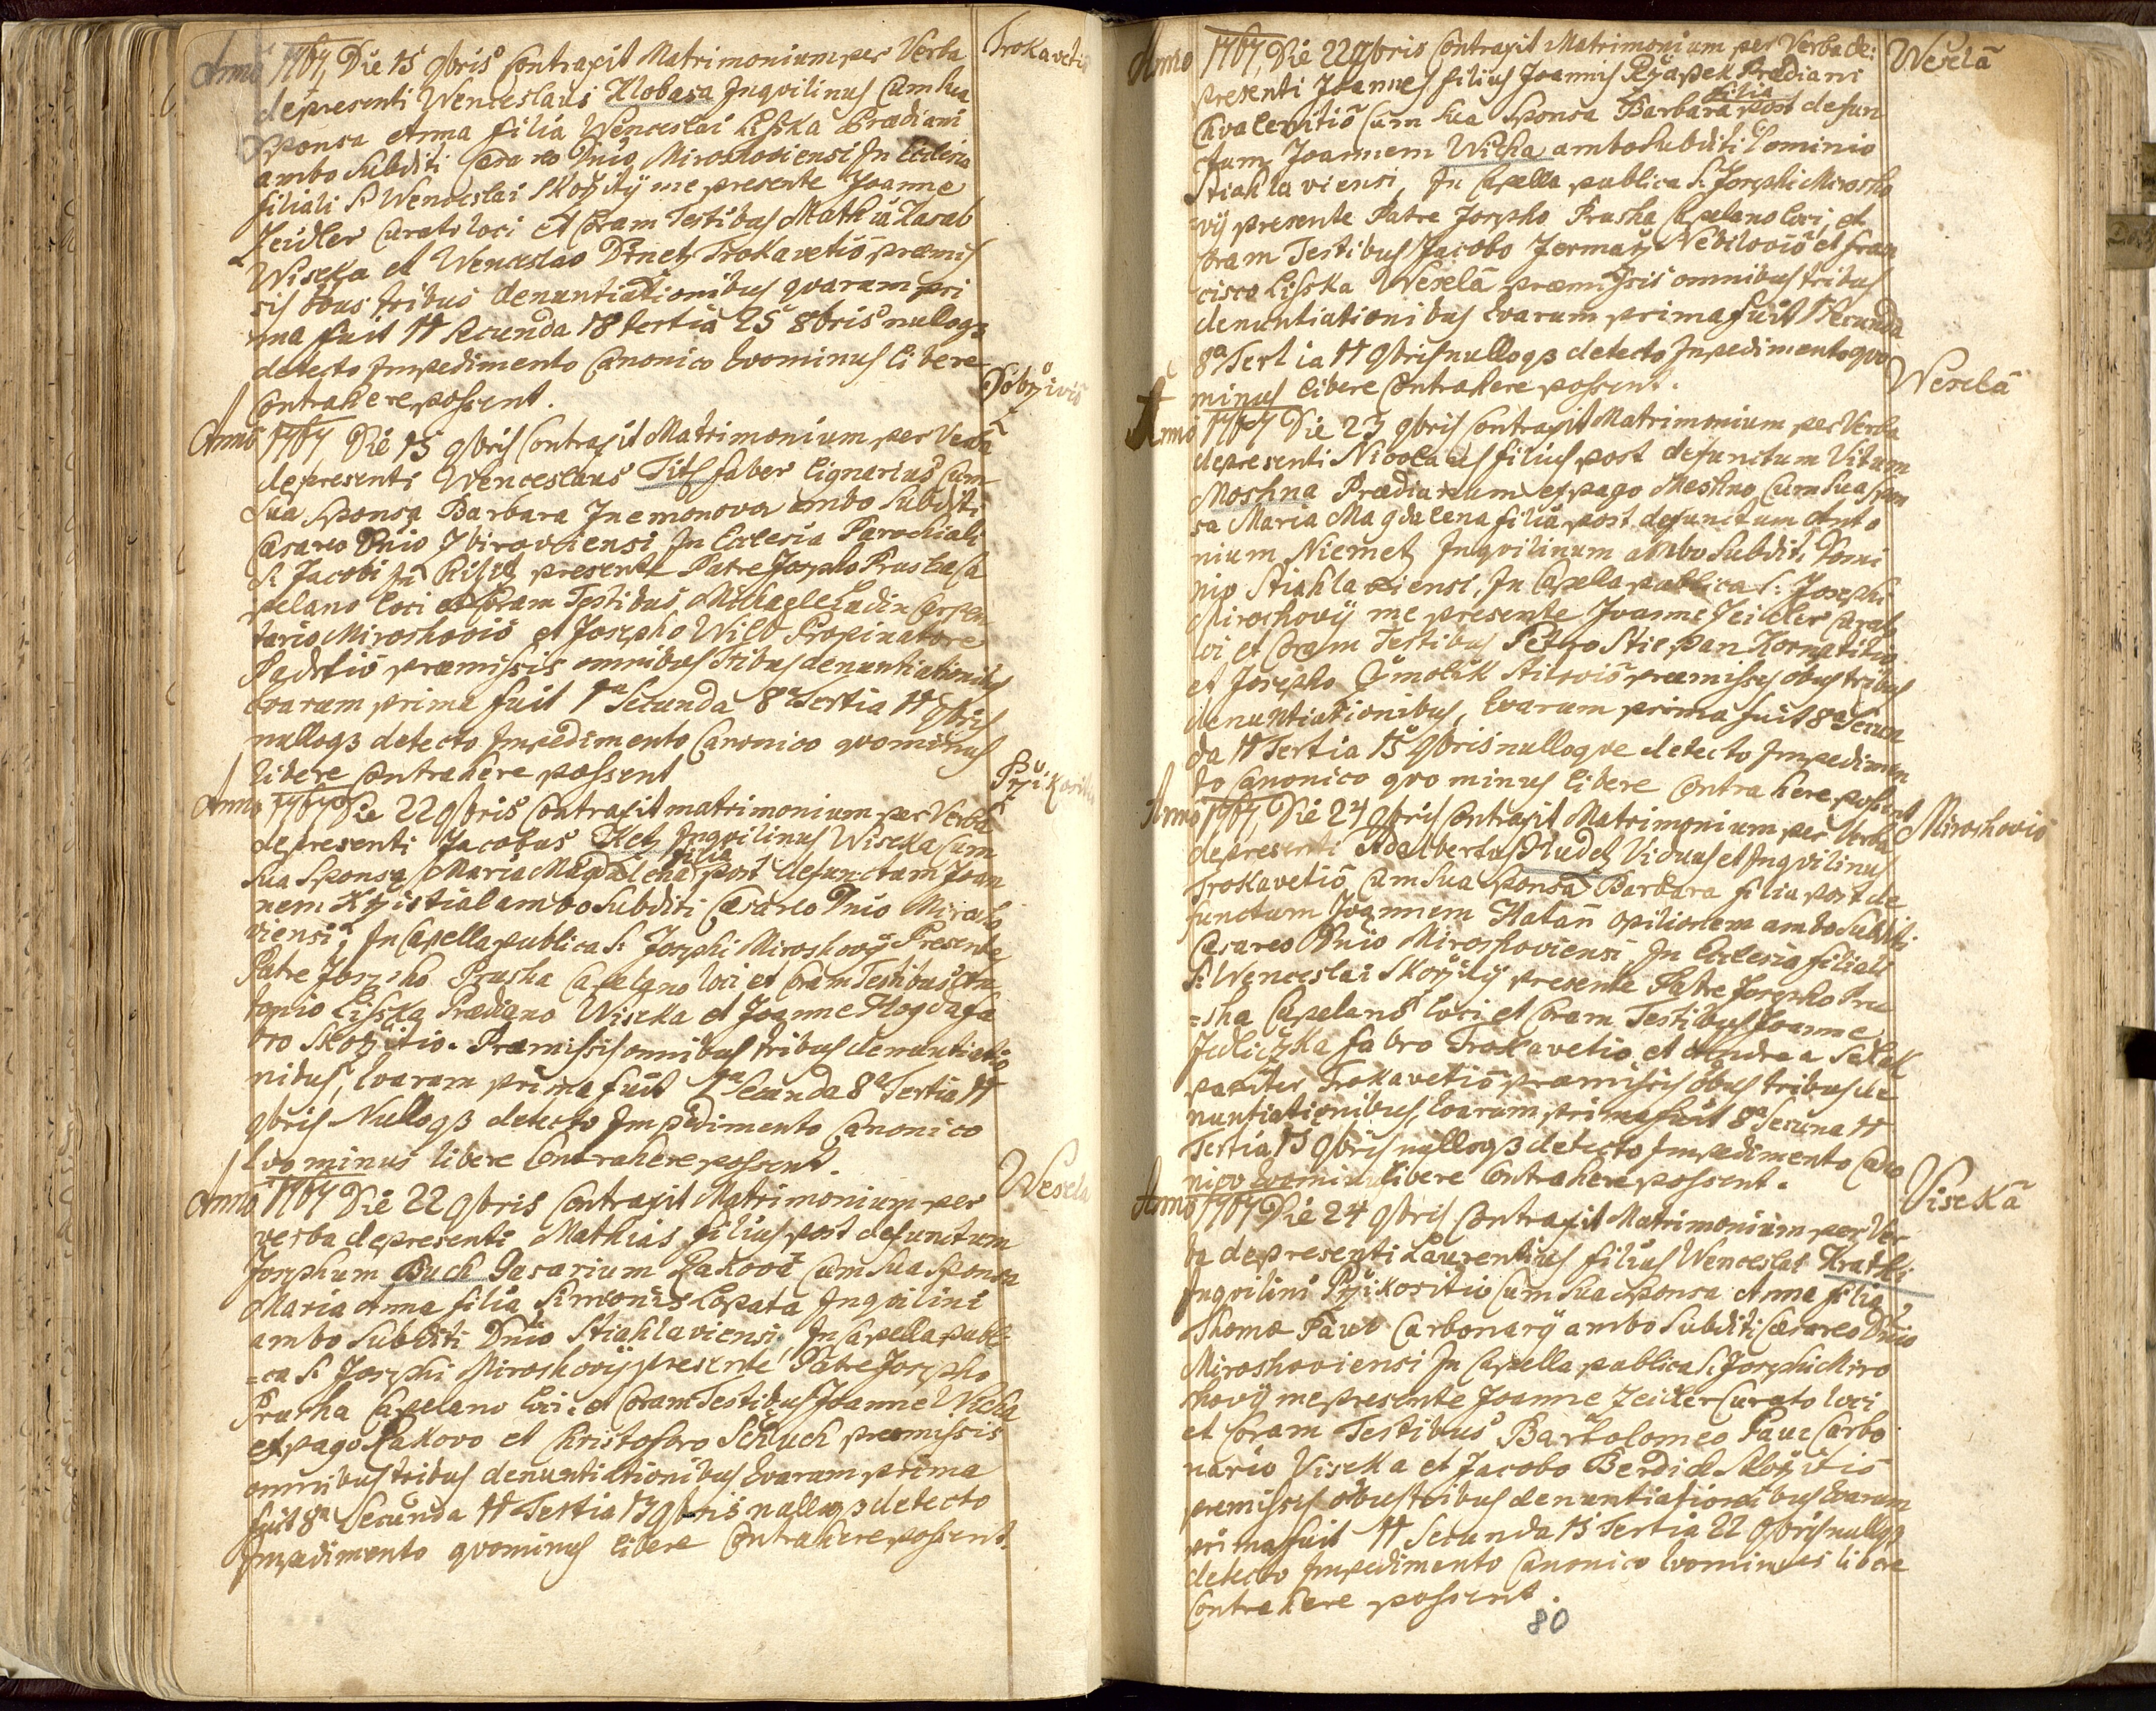 Trokavetiō
Anno 1767, Die 15 9bris Contraxit Matrimonium per Verba
de presenti Wenceslaus Klobasa Inqvilinus Cum Sua
Sponsa Anna filia Wenceslai Lisska Prædiani
ambo Subditi Cæsareo Dnio Miroshoviensi In Ecclesia
filiali S: Wenceslai Skoržitÿ me presente Joanne
Zeidler Curato loci et Coram Testibus Mathia Kasal
Wiseka et Wenceslao Drnetz Trokavetiō præmis
sis obus tribus denuntiationibus qvarum pri
ma fuit 11 Secunda 18 tertia 25 8bris nulloq3
detecto Impedimento Canonico Qvominus libere
Contrahere possent.
Dobrživiō
Anno 1767, Die 15 9bris Contraxit Matrimonium per Verba
de presenti Wenceslaus Titl faber lignarius Cum
Sua Sponsa Barbara Jnemonova ambo Subditi
Cæsareo Dnio Zbiroviensi In Ecclesia Parochiali
S: Jacobi presente Patre Josepho Prusha Ca
pelano loci et Coram Testibus Michaele Ladin Carpen
tario Miroshoviō et Josepho Wild Propinatore
Padrtiō præmissis omnibus Tribus denuntiationibus
Qvarum prima fuit 1a Secunda 8a Tertia 11 9bris
nulloq3 detecto Impedimento Canonico qvominus
libere Contrahere possent
Pržikoritiō
Anno 1767 Die 22 9bris Contraxit matrimonium per Verba
de presenti Jacobus Ketz Inqvilinus Wiseka Cum
Sua Sponsa Maria Magdalena filia post defunctum Joan
nem Kržistial ambo Subditi Cæsareo Dnio Mirosho
viensi, In Capella publica S: Josephi Miroshovÿ Presente
Patre Josepho Prusha Capelano loci et Coram Testibus An
tonio Lisska Prædiano Wiseka et Joanne Hogda fa
bro Skoržitiō. Præmissis omnibus tribus denuntiatio
nibus, Qvarum prima fuit 1a Secunda 8a Tertia 11
9bris Nulloq3 detecto Impedimento Canonico
Qvo minus libere Contrahere possent.
Wesela
Anno 1767 Die 22 9bris Contraxit Matrimonium per
verba de presenti Mathias filius post defunctum
Josephum Buch Casarium Rakovā Cum Sua Sponsa
Maria Anna filia Simonis Lopata Inqvilini
ambo Subditi Dnio Stiahlaviensi, In Capella publi
=ca S: Josephi Miroshovÿ presente Patre Josepho
Prusha Capelano loci et Coram Testibus Joanne Vicha
ex pago Rakovo et Christoforo Schuch præmissis
omnibus tribus denuntiationibus Qvarum prima
fuit 8a Secunda 11 Tertia 15 9bris nulloq3 detecto
Impedimento qvominus libere Contrahere possent.
Weselā
Anno 1767, Die 22 9bris Contraxit Matrimonium per Verba de:
presenti Joannes filius Joannis Ržapek Prædiani
Chvalenitiō Cum Sua Sponsa Barbara filia post defun
ctum Joannem Wicha ambo Subditi Dominio
Stiahlaviensi, In Capella publica S: Josephi Mirosho
vÿ presente Patre Josepho Prusha Capelano loci, et
Coram Testibus Jacobo Jermarž Nebiloviō et fran
cisco Lisska Weselā præmissis omnibus tribus
denuntiationibus Qvarum prima fuit 1 Secunda
8a Tertia 11 9bris nulloq3 detecto Impedimento qvo
minus libere Contrahere possent.
Weselā
Anno 1767 Die 23 9bris Contraxit Matrimonium per Verba
de presenti Nicolaus filius post defunctum Vitum
Moshna Prædianum ex pago Meshno, Cum Sua Spon
sa Maria Magdalena filia post defunctum Anto
nium Niemetz Inqvilinum ambo Subditi Domi
nio Stiahlaviensi, In Capella publica S: Josephi
Miroshovÿ me presente Joanne Zeidler Curato
loci et Coram Testibus Petro Stiepan Kornatitiō
et Josepho Čzmolik Stitoviō præmissis obus tribus
denuntiationibus, Qvarum prima fuit 8a Secun
da 11 Tertia 15 9bris nulloqve detecto Impedimen
to Canonico qvo minus libere Contrahere possent
Miroshoviō
Anno 1767, Die 24 9bris Contraxit Matrimonium per Verba
de presenti Adalbertus Hudetz Viduus et Inqvilinus
Trokavetiō Cum Sua Sponsa Barbara filia post de
functum Joannem Hatañ opilionem ambo Subditi
Cæsareo Dnio Miroshoviensi, In Ecclesia filiali
S: Wenceslai Skoržitÿ presente Patre Josepho Pru
=sha Capelano loci et Coram Testibus Joanne
Jedliczka fabro Trokavetiō et Andrea Sedlak
pariter Trokavetiō præmissis obus tribus de
nuntiationibus, Qvarum prima fuit 8a Secuna 11
Tertia 15 9bris nulloq3 detecto Impedimento Cano
nico Qvominus libere Contrahere possent.
Visekā
Anno 1767 Die 24 9bris Contraxit Matrimonium per Ver
ba de presenti Laurentius filius Wenceslai Kratki
Inqvilini Pržikoritiō Cum Sua Sponsa Anna filia
Thomæ Pauer Carbonarÿ ambo Subditi Cæsareo Dnio
Miroshoviensi In Capella publica S: Josephi Miro
shovÿ me presente Joanne Zeidler Curato loci
et Coram Testibus Bartolomeo Pauer Carbo
nario Viseka et Jacobo Berdich Skoržitiō
premissis obus tribus denuntiationibus Qvarum
prima fuit 11 Secunda 15 Tertia 22 9bris nulloq3
detecto Impedimento Canonico Qvominus libere
Contrahere possent.
80